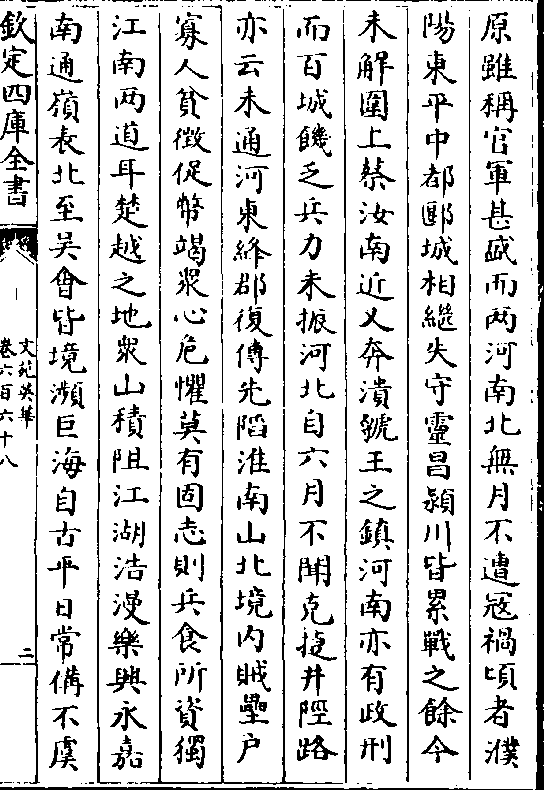 原雖稱官軍甚盛而两河南北無月不遭冦禍頃者濮
陽東平中都郾城相繼失守靈昌潁川皆累戰之餘今
未解圍上蔡汝南近乂奔潰虢王之鎮河南亦有政刑
而百城饑乏兵力未振河北自六月不聞克捷井陘路
亦云未通河東絳郡復傳先䧟淮南山北境内賊壘户
寡人貧徴促幣竭衆心危懼莫有固志則兵食所資獨
江南两道耳楚越之地衆山積阻江湖浩漫樂興永嘉
南通嶺表北至吴會皆境瀕巨海自古平日常備不虞
欽定四庫全書
文苑英華
卷六百六十八
二